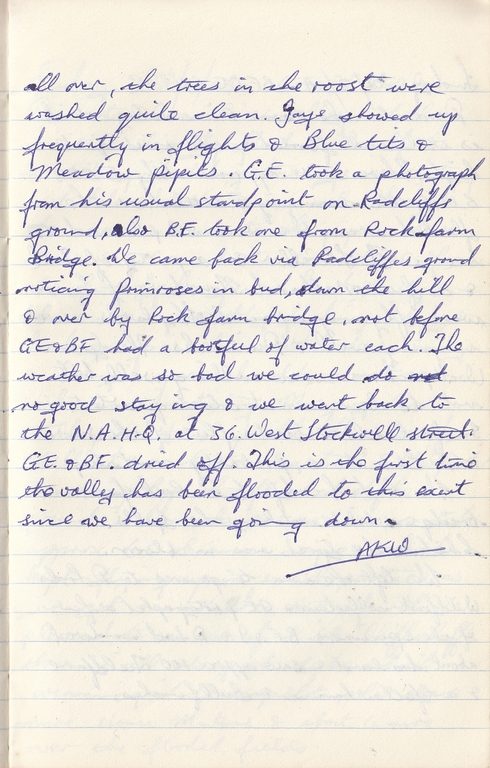 all over, the trees in the roost were
washed quite clean. Jays showed up
frequently in flights & Blue tits &
Meadow pipits. G.E. took a photograph
from his usual standpoint on Radcliffs
ground, also B.F. took one from Rock farm
Bridge. We came back via Radcliffes ground
noticing Primroses in bud, down the hill
& over by Rock farm bridge, not before
GE & BF had a bootful of water each. The
weather was so bad we could do
no good staying & we went back to
the N.A.H-Q. at 36. West Stockwell street.
G.E. & BF. dried off. This is the first time
the valley has been flooded to this
since we have been going down.